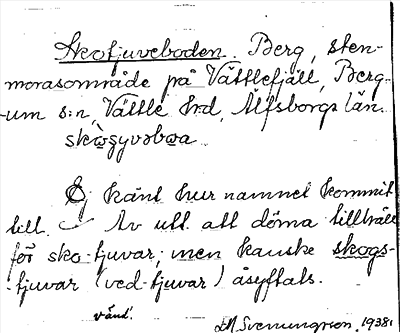 Skotjuveboden. Berg, sten-
morasområde på Vättlefjäll, Berg-
-um s:n, Vättle hrd, Älfsborgs län.
sko̠ʒyvəbωa
Ej känt hur namnet kommit
till. Av utt. att döma tillhåll
för sko-tjuvar; men kanske skogs-
-tjuvar (ved-tjuvar) åsyftats.
vänd.
Svenungsson, 1938.